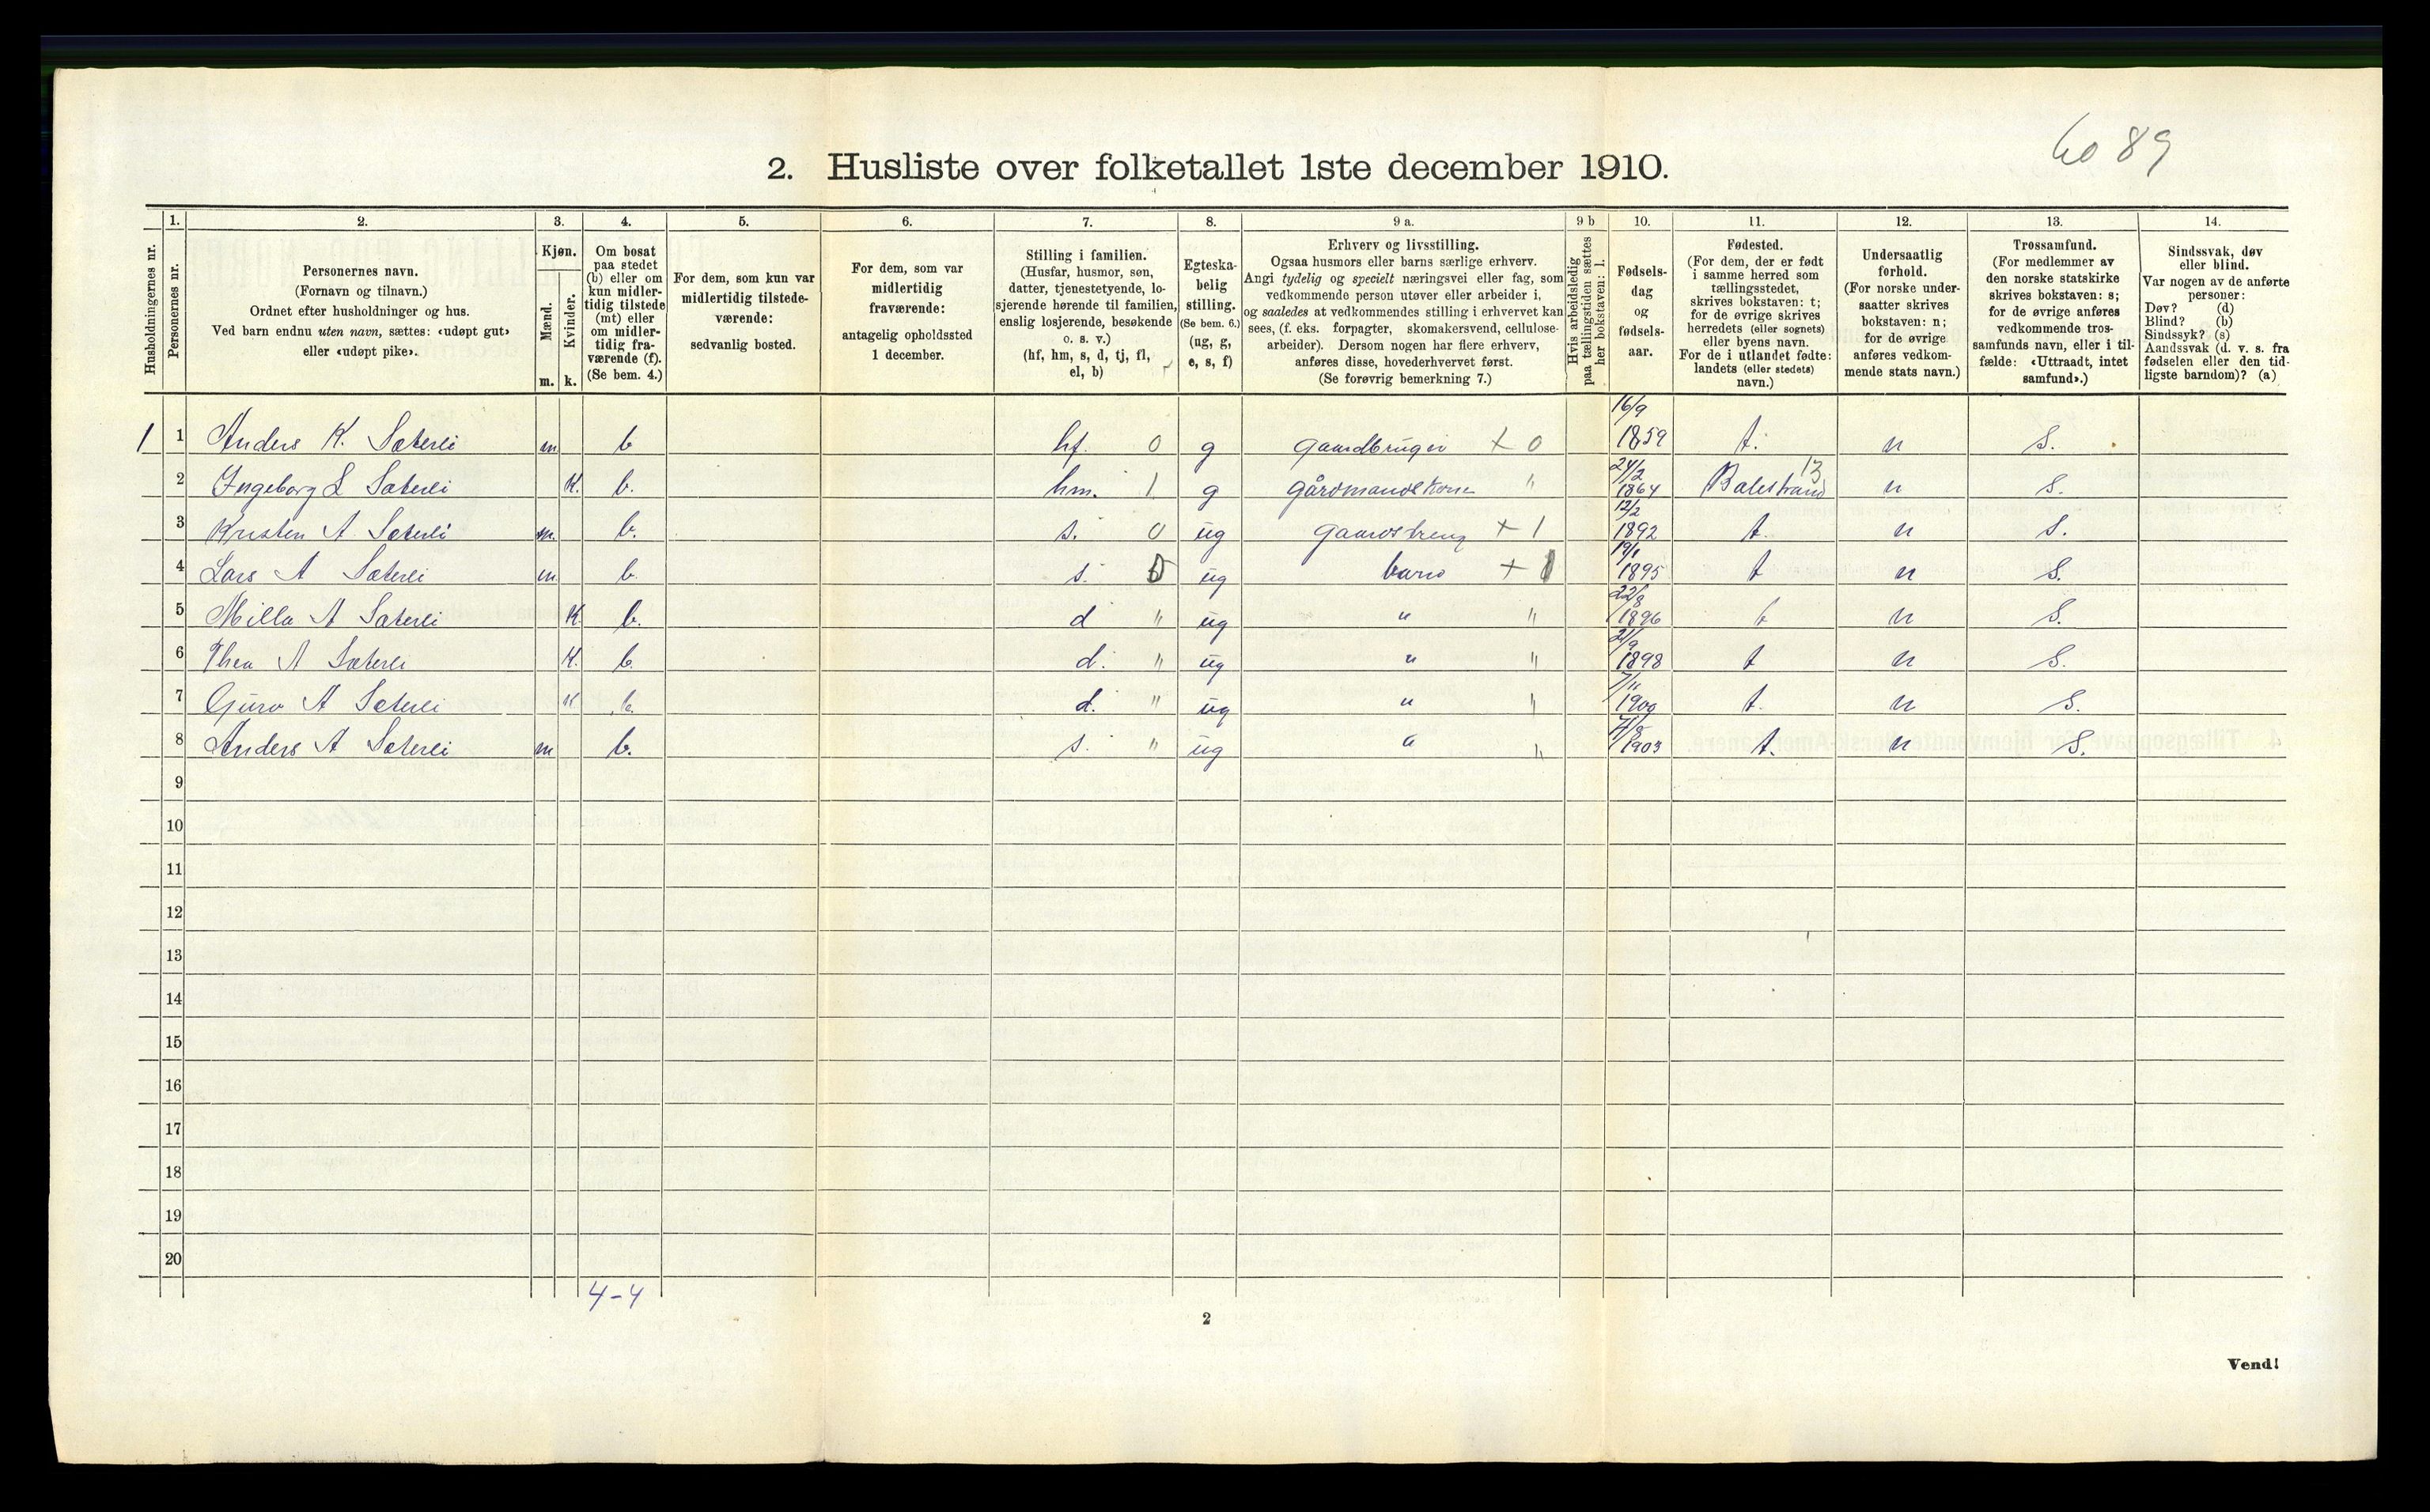 6089
2. Husliste over folketallet 1ste december 1910.
1. 2. 3. 4. 5. 6. 7. 8. 9 a. 9 b 10. 11. 12. 13. 14.
Husholdningernes nr.
Personernes nr.
Personernes navn.
(Fornavn og tilnavn.)
Ordnet efter husholdninger og hus.
Ved barn endnu uten navn, sættes: «udøpt gut»
eller «udøpt pike».
Kjøn.
Mænd.
Kvinder.
m. k.
Om bosat
paa stedet
(b) eller om
kun midler-
tidig tilstede
(mt) eller
om midler-
tidig fra-
værende (f).
(Se bem. 4.)
For dem, som kun var
midlertidig tilstede-
værende:
sedvanlig bosted.
For dem, som var
midlertidig
fraværende:
antagelig opholdssted
1 december.
Stilling i familien.
(Husfar, husmor, søn,
datter, tjenestetyende, lo-
sjerende hørende til familien,
enslig losjerende, besøkende
o. s. v.)
(hf, hm, s, d, tj, fl,
el, b)
Egteska-
belig
stilling.
(Se bem. 6.)
(ug, g,
e, s, f)
Erhverv og livsstilling.
Ogsaa husmors eller barns særlige erhverv.
Angi tydelig og specielt næringsvei eller fag, som
vedkommende person utøver eller arbeider i,
og saaledes at vedkommendes stilling i erhvervet kan
sees, (f. eks. forpagter, skomakersvend, cellulose-
arbeider). Dersom nogen har flere erhverv,
anføres disse, hovederhvervet først.
(Se forøvrig bemerkning 7.)
Hvis arbeidsledig
paa tællingstiden sættes
her bokstaven: l.
Fødsels-
dag
og
fødsels-
aar.
Fødested.
(For dem, der er født
i samme herred som
tællingsstedet,
skrives bokstaven: t;
for de øvrige skrives
herredets (eller sognets)
eller byens navn.
For de i utlandet fødte:
landets (eller stedets)
navn.)
Undersaatlig
forhold.
(For norske under-
saatter skrives
bokstaven: n;
for de øvrige
anføres vedkom-
mende stats navn.)
Trossamfund.
(For medlemmer av
den norske statskirke
skrives bokstaven: s;
for de øvrige anføres
vedkommende tros-
samfunds navn, eller i til-
fælde: «Uttraadt, intet
samfund».)
Sindssvak, døv
eller blind.
Var nogen av de anførte
personer:
Døv? (d)
Blind? (b)
Sindssyk? (s)
Aandssvak (d. v. s. fra
fødselen eller den tid-
ligste barndom)? (a)
1 1 Anders K. Sæterli m b hf. 0 g gaardbruger + 0 16/9 1859 t. n S.
2 Ingeborg L Sæterli K. b. hm. 1 g gårdmandskone " 24/2 1864 Balestrand 13 n S.
3 Kristen A Sæterli m. b. s. 0 ug gaardsdreng + 1 12/2 1892 t. n S.
4 Lars A Sæterli m b. s. ug barn + 19/1 1895 t n S.
5 Milla A Sæterli K b. d " ug " " 22/8 1896 t n S.
6 Thea A Sæterli K. b. d. " ug " " 21/9 1898 t n S.
7 Guro A Sæterli K b. d. " ug " " 7/11 1900 t. n S.
8 Anders A Sæterli m b. s. " ug " " 1903 t. n S.
9
10
11
12
13
14
15
16
17
18
19
20
4-4
2
Vend!